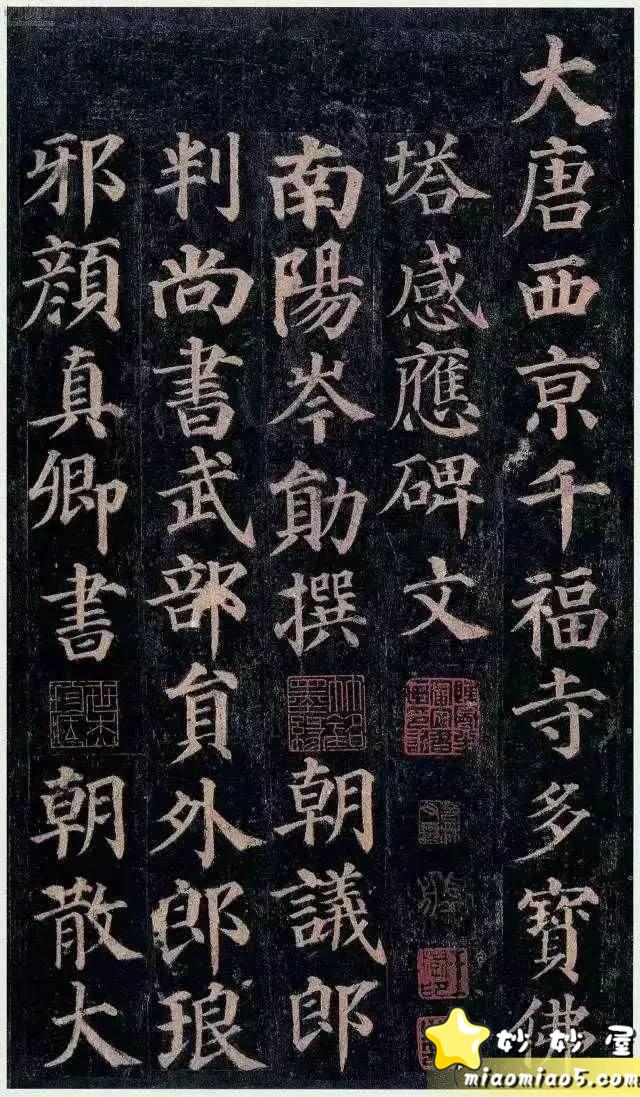 大唐西京千福寺多寶佛
塔感應碑文
南陽岑勛撰 朝議郎
判尚書武部員外郎琅
邪顏真卿書 朝散大
妙妙屋
miaomiao5.com